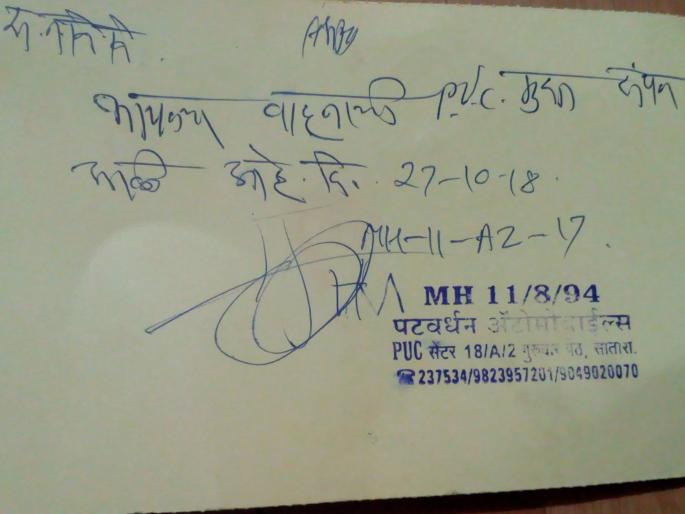 स.नमस्ते
आपल्या वाहनाची P.U.C. मुदत संपत
आली आहे. दि. 27-10-18.
MH-11-AZ-17.
MH 11/8/94
पटवर्धन ॲटोमोबाईल्स
PUC सेंटर 18/A/2 गुरुवार पेठ, सातारा.
☎237534/9823957201/9049020070